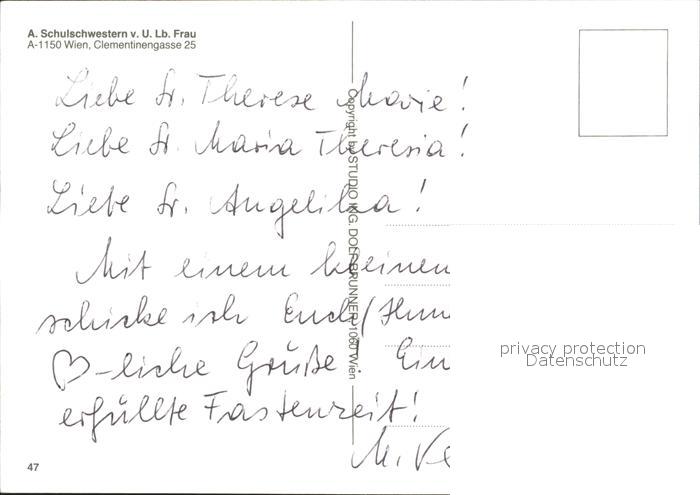 A. Schulschwestern v. U. Lb. Frau
A-1150 Wien, Clementinengasse 25
Liebe Sr. Therese Marie!
Liebe Sr. Maria Theresia!
Liebe Sr. Angelika!
Mit einem kleinen
schicke ich Euch/Ihnen
♡-liche Grüße. Ein
erfüllte Fastenzeit!
M. Ve
Copyright by STUDIO ING. 1060 Wien
privacy protection
Datenschutz
47